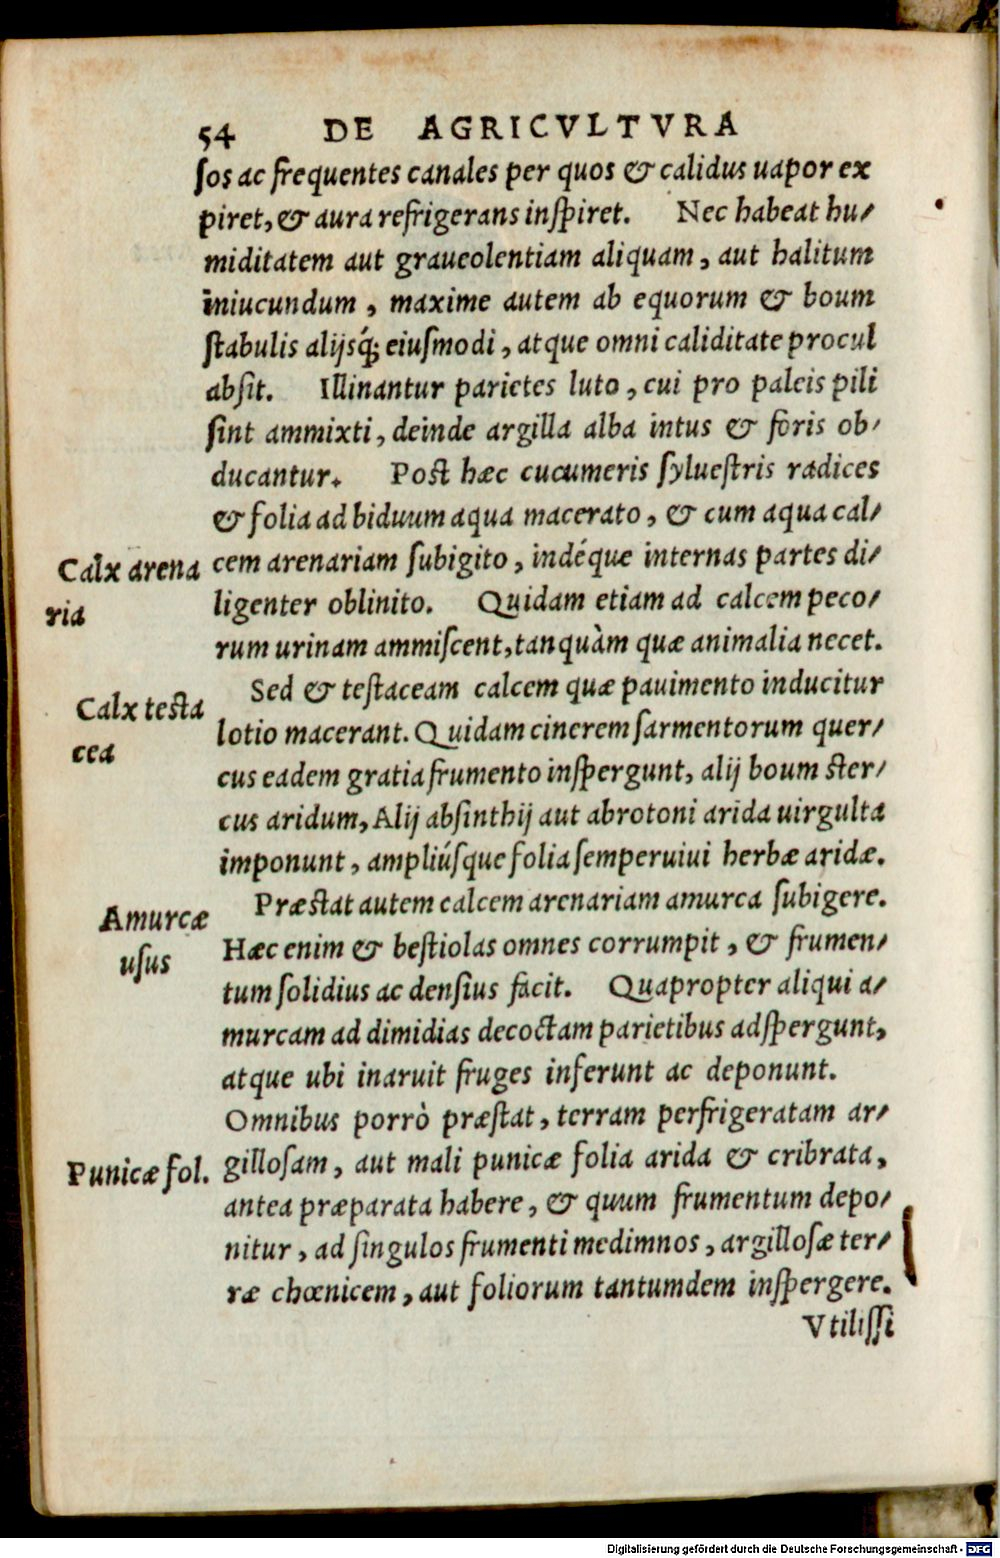 54 DE AGRICVLTVRA
ſos ac frequentes canales per quos & calidus uapor ex
piret, & aura refrigerans inſpiret. Nec habeat hu-
miditatem aut graueolentiam aliquam, aut halitum
iniucundum, maxime autem ab equorum & boum
ſtabulis alijsq́; eiuſmodi, atque omni caliditate procul
abſit. Illinantur parietes luto, cui pro paleis pili
ſint ammixti, deinde argilla alba intus & foris ob-
ducantur. Poſt hæc cucumeris ſylueſtris radices
& folia ad biduum aqua macerato, & cum aqua cal-
Calx arena cem arenariam ſubigito, indéque internas partes di-
ria ligenter oblinito. Quidam etiam ad calcem peco-
rum urinam ammiſcent, tanquàm quæ animalia necet.
Calx teſta Sed & teſtaceam calcem quæ pauimento inducitur
cea lotio macerant. Quidam cinerem ſarmentorum quer-
cus eadem gratia frumento inſpergunt, alij boum ſter-
cus aridum, Alij abſinthij aut abrotoni arida uirgulta
imponunt, ampliúſque folia ſemperuiui herbæ aridæ.
Amurcæ Præſtat autem calcem arenariam amurca ſubigere.
uſus Hæc enim & beſtiolas omnes corrumpit, & frumen-
tum ſolidius ac denſius facit. Quapropter aliqui a-
murcam ad dimidias decoctam parietibus adſpergunt,
atque ubi inaruit fruges inferunt ac deponunt.
Omnibus porrò præſtat, terram perfrigeratam ar-
Punicæ fol. gilloſam, aut mali punicæ folia arida & cribrata,
antea præparata habere, & quum frumentum depo-
nitur, ad ſingulos frumenti medimnos, argilloſæ ter-
ræ chœnicem, aut foliorum tantumdem inſpergere.
Vtiliſſi
Digitalisierung gefördert durch die Deutsche Forschungsgemeinschaft - DFG